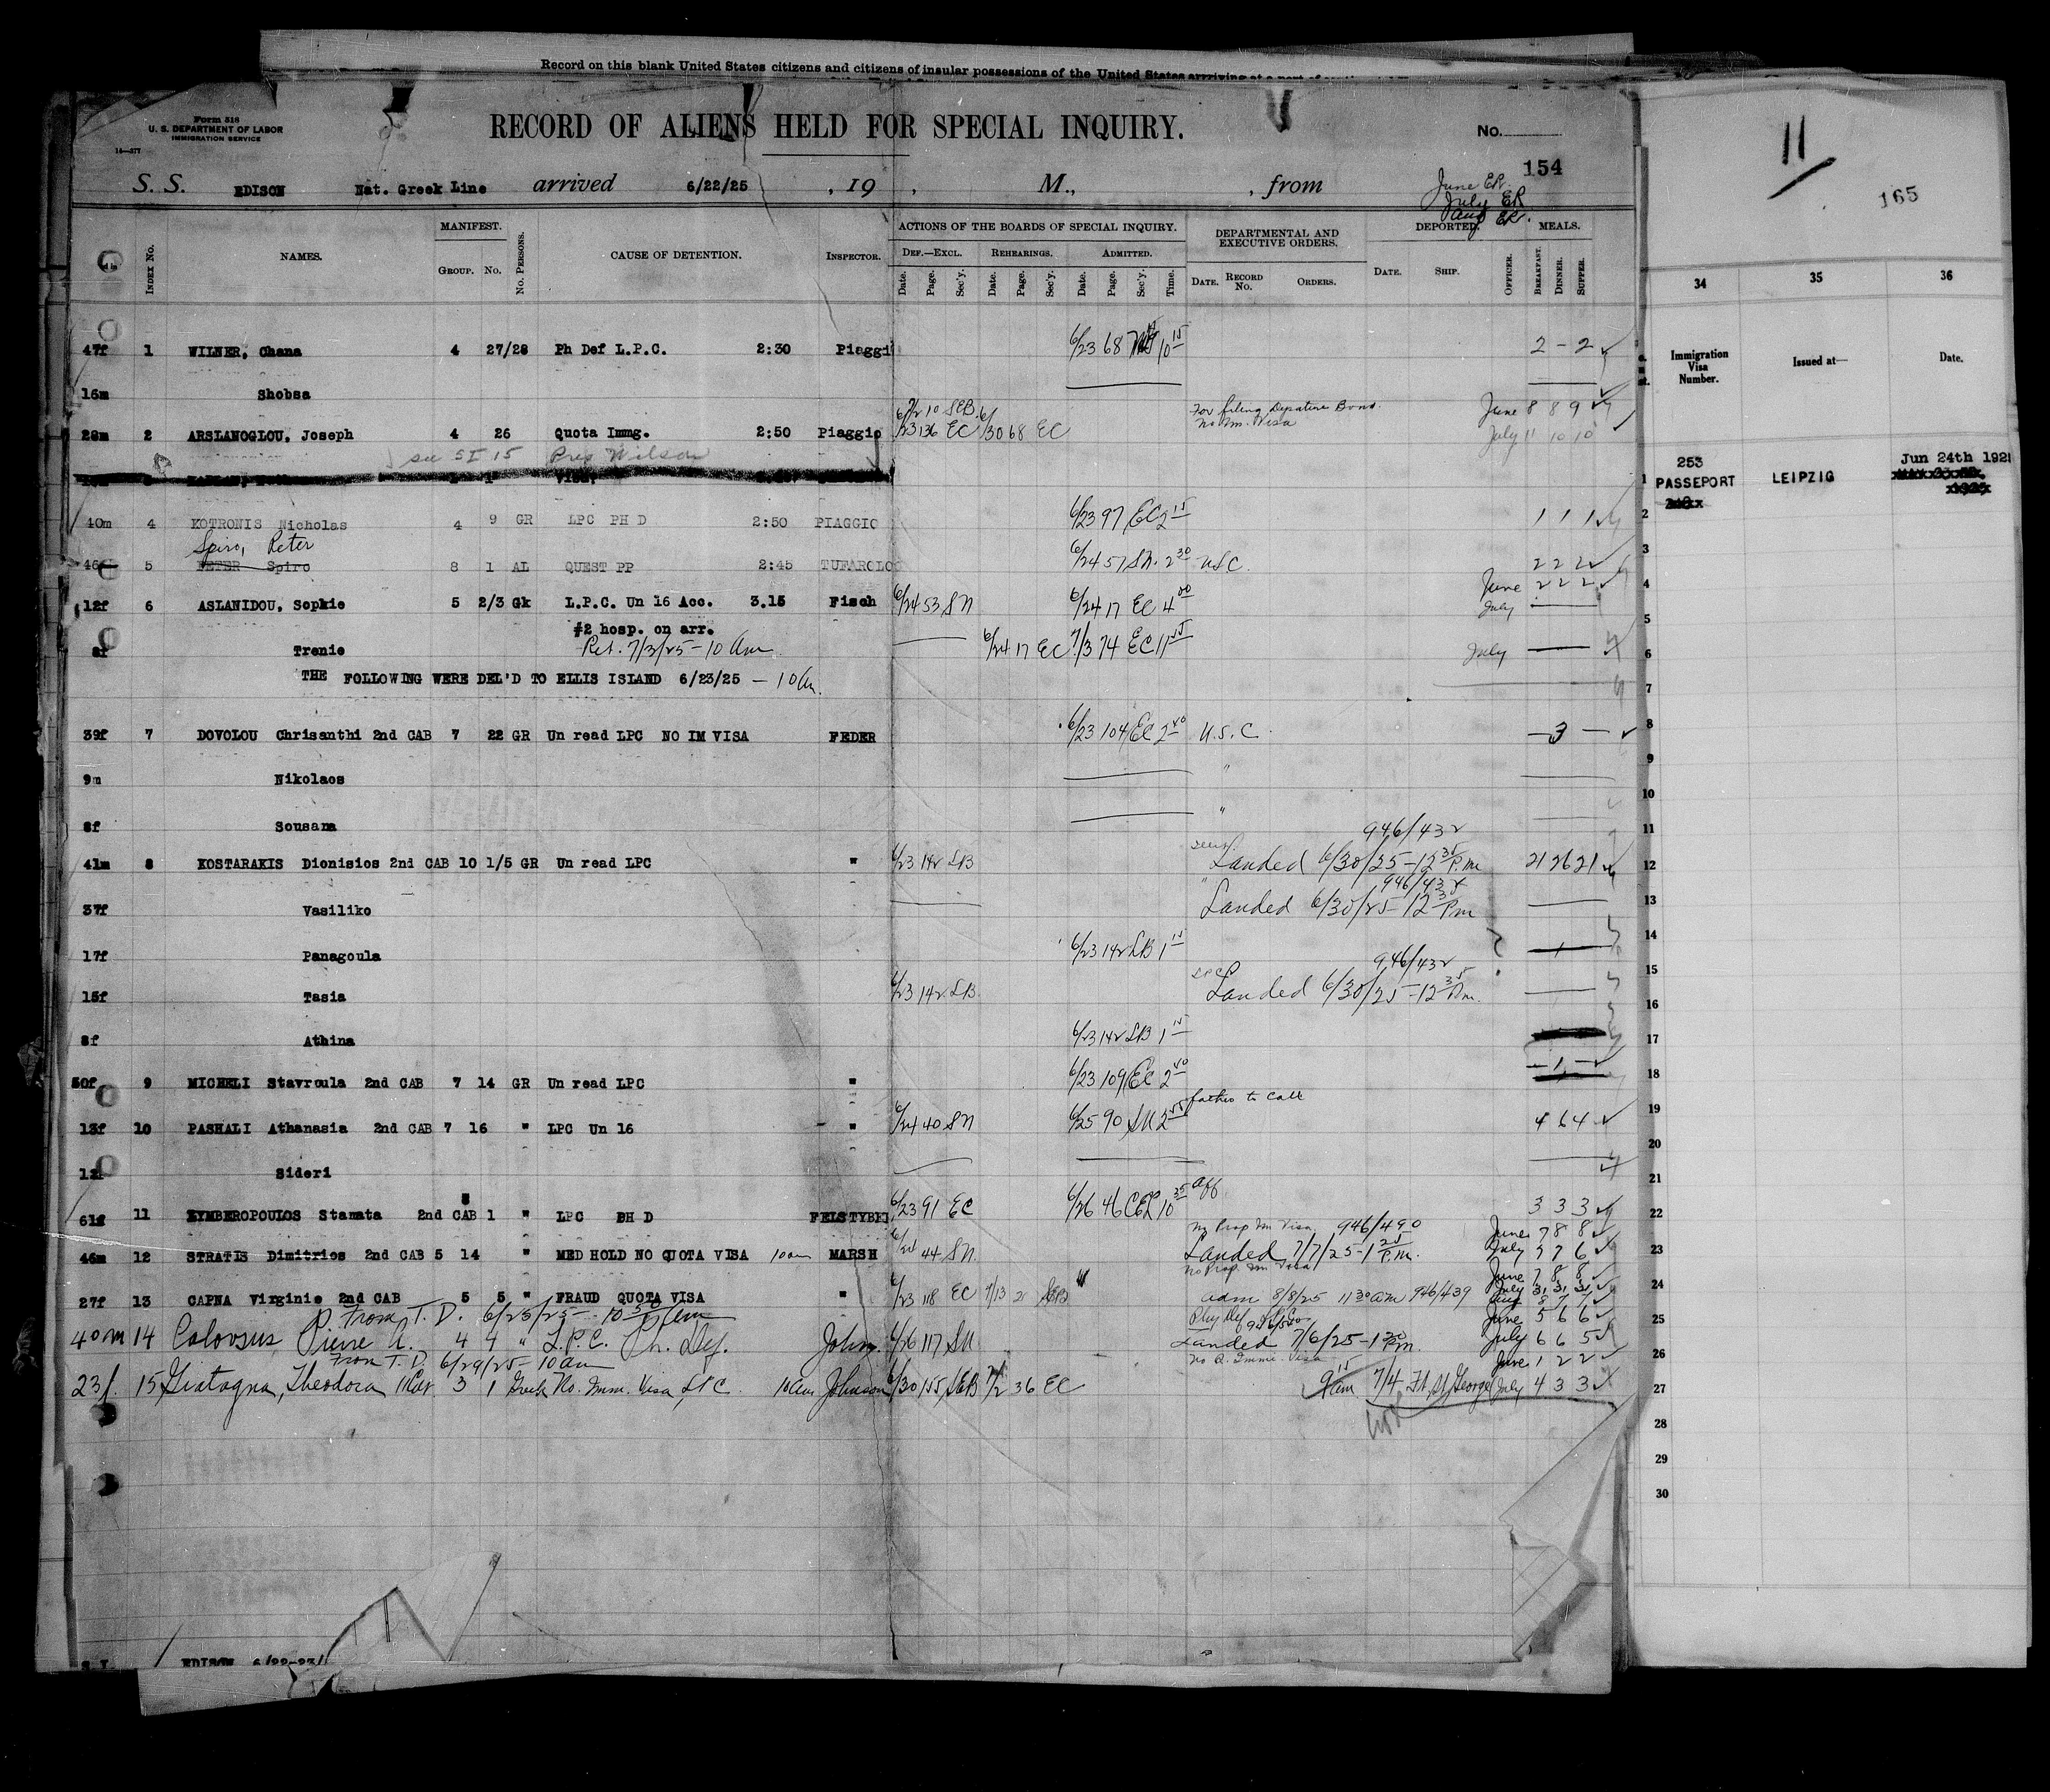 Record on this blank United States citizens and citizens of insular possessions of the United States arrriving at a port of
Form 518
U. S. DEPARTMENT OF LABOR
IMMIGRATION SERVICE
14—277
RECORD OF ALIENS HELD FOR SPECIAL INQUIRY.
No.
154
S. S. EDISON Nat. Greek Line arrived 6/22/25 , 19 , M., , from
June ER.
July ER
Aug ER.
INDEX No. NAMES. MANIFEST. GROUP. No. No. PERSONS. CAUSE OF DETENTION. INSPECTOR. ACTIONS OF THE BOARDS OF SPECIAL INQUIRY. DEF.—EXCL. Date. Page. Sec'y. REHEARINGS. Date. Page. Sec'y. ADMITTED. Date. Page. Sec'y. Time. DEPARTMENTAL AND EXECUTIVE ORDERS. DATE. RECORD No. ORDERS. DEPORTED. DATE. SHIP. OFFICER. MEALS. BREAKFAST. DINNER. SUPPER.
47f 1 WILNER, Chana 4 27/28 Ph Def L.P.C. 2:30 Piaggi 6/23 68 10 15 2 - 2
16m Shobsa
For filing Departure Bond. June 8 8 9
28m 2 ARSLANOGLOU, Joseph 4 26 Quota Immg. 2:50 Piaggio 7/2 10 SEB 6/23 136 EC 6/30 68 EC No Im. Visa July 11 10 10
see SI 15 Prep Wilson
40m 4 KOTRONIS Nicholas 4 9 GR LPC PH D 2:50 PIAGGIO 6/23 97 EC 2 15 1 1 1
Spiro, Peter
46 5 PETER Spiro 8 1 AL QUEST PP 2:45 TUFAROLO 6/24 57 SN. 2 30 USC. 2 2 2
June 2 2 2
12f 6 ASLANIDOU, Sophie 5 2/3 Gk L.P.C. Un 16 Acc. 3.15 Fisch 6/24 53 SN 6/24 17 EC 4 00 July
#2 hosp. on arr.
8f Trenie Ret. 7/3/25 - 10 Am 6/24 17 EC 7/3 74 EC 11 July
THE FOLLOWING WERE DEL'D TO ELLIS ISLAND 6/23/25 — 10 Am.
39f 7 DOVOLOU Chrisanthi 2nd CAB 7 22 GR Un read LPC NO IM VISA FEDER 6/23 104 EC 2 40 U.S.C. 3
9m Nikolaos "
8f Sousana "
946/432
41m 8 KOSTARAKIS Dionisios 2nd CAB 10 1/5 GR Un read LPC " 6/23 142 LB Landed 6/30/25 - 12 35 P.m. 21 26 21
946/432
37f Vasiliko Landed 6/30/25 - 12 35 P.m
17f Panagoula 6/23 142 LB 1 15 1
946/432
LPC
15f Tasia 6/23 142 LB Landed 6/30/25 - 12 35 P.m.
8f Athina 6/23 142 LB 1 15
50f 9 MICHELI Stavroula 2nd CAB 7 14 GR Un read LPC " 6/23 109 EC 2 40 1
father to call
13f 10 PASHALI Athanasia 2nd CAB 7 16 " LPC Un 16 " 6/24 40 SN 6/25 90 SN 2 4 6 4
12 Sideri
61f 11 KYMBEROPOULOS Stamata 2nd CAB 8 1 " LPC PH D FELSTYBEI 6/23 91 EC 6/26 46 CEL 10 35 Aff 3 3 3
No Prop Im Visa 946/490 June 7 8 8
46m 12 STRATIS Dimitrios 2nd CAB 5 14 " MED HOLD NO QUOTA VISA 10 am MARSH 44 SN. Landed 7/7/25 - 1 25 P.m. July 5 7 6
No Prop. Im Visa June 7 8 8
July 31 31 31
27f 13 CAPNA Virginie 2nd CAB 5 5 " FRAUD QUOTA VISA " 6/23 118 EC 7/13 2 SEB adm 8/8/25 11 30 am 946/439 Aug 8 7 7
From T. D. 6/25/25 - 10 30 Am
Phy Def LPC June 5 6 6
40m 14 Colovsus Pierre A. 4 4 " L.P.C. Ph. Def. John 6/26 117 SN Landed 7/6/25 - 1 30 P.m. July 6 6 5
From T. D. 6/29/25 - 10 am
No Q. Immi. Visa June 1 2 2
23f. 15 Giatagna, Theodora 3 1 Greek No. Imm. Visa, LPC. 10 am Johnson 6/30 155 SEB 7/2 36 EC 9 15 am 7/4 Ft. St. George July 4 3 3
S.I. EDISON 6/22-23/
11
165
34 35 36
Immigration Visa Number. Issued at— Date.
253 Jun 24th 192
PASSEPORT LEIPZIG
1
2
3
4
5
6
7
8
9
10
11
12
13
14
15
16
17
18
19
20
21
22
23
24
25
26
27
28
29
30